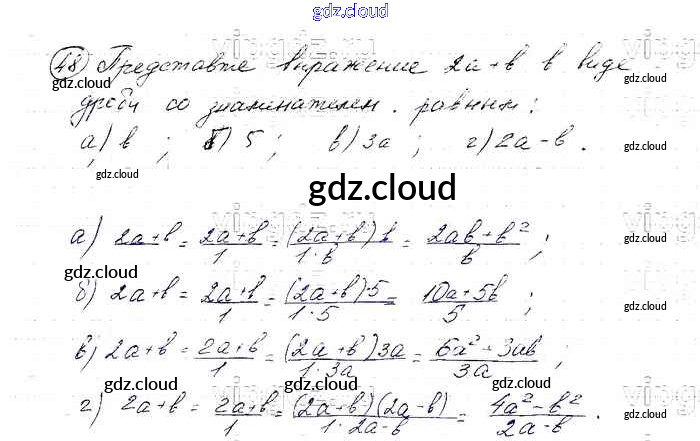 gdz.cloud
48) Представте выражение 2a+b в виде
gdz.cloud
дроби со знаминателем . равным:
gdz.cloud
а) b ; б) 5 ; в) 3a ; г) 2a-b .
gdz.cloud
gdz.cloud
gdz.cloud
а) 2a+b = (2a+b)/1 = ((2a+b)b)/(1·b) = (2ab+b²)/b ;
gdz.cloud
gdz.cloud
б) 2a+b = (2a+b)/1 = ((2a+b)·5)/(1·5) = (10a+5b)/5 ;
gdz.cloud
в) 2a+b = (2a+b)/1 = ((2a+b)3a)/(1·3a) = (6a²+3ab)/3a ;
gdz.cloud gdz.cloud gdz.cloud
г) 2a+b = (2a+b)/1 = ((2a+b)(2a-b))/(1·2a-b) = (4a²-b²)/(2a-b) .